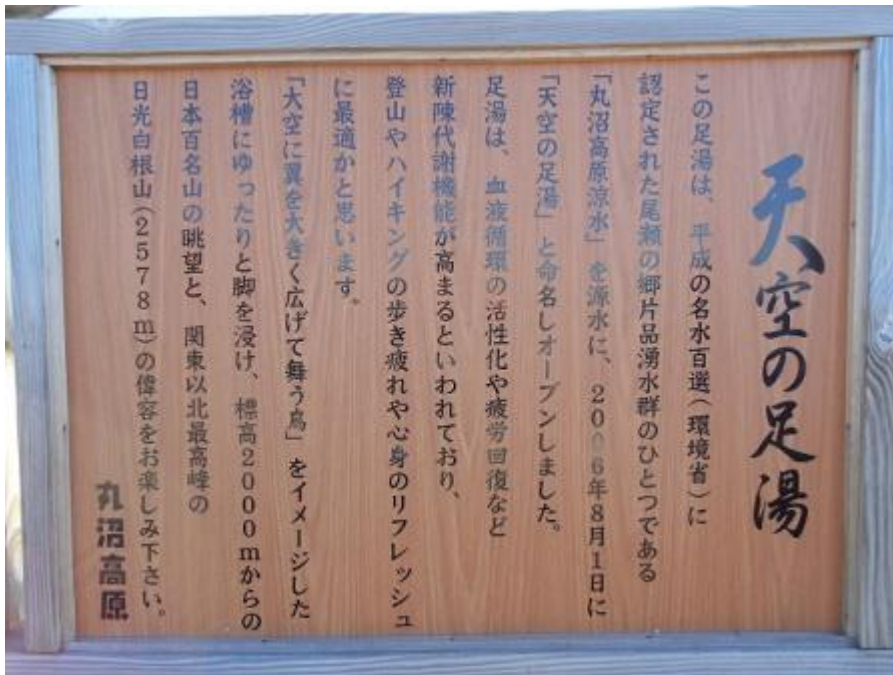 天空の足湯
この足湯は、平成の名水百選(環境省)に
認定された尾瀬の郷片品湧水群のひとつである
「丸沼高原涼水」を源水に、2006年8月1日に
「天空の足湯」と命名しオープンしました。
足湯は、血液循環の活性化や疲労回復など
新陳代謝機能が高まるといわれており、
登山やハイキングの歩き疲れや心身のリフレッシュ
に最適かと思います。
「大空に翼を大きく広げて舞う鳥」をイメージした
浴槽にゆったりと脚を浸け、標高2000mからの
日本百名山の眺望と、関東以北最高峰の
日光白根山(2578m)の偉容をお楽しみ下さい。
丸沼高原